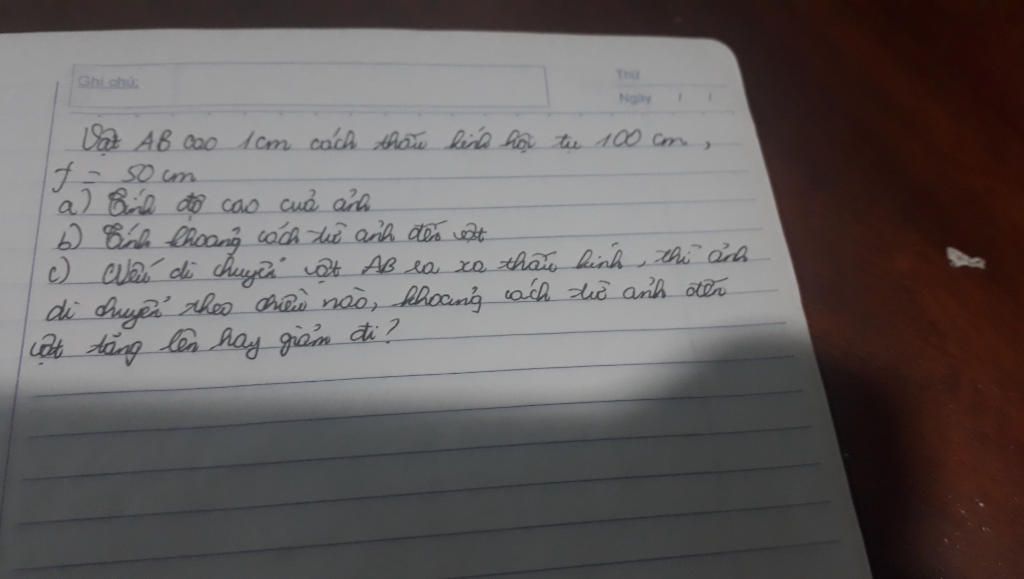 Ghi chú:
Thứ
Ngày / /
Vật AB cao 1cm cách thấu kính hội tụ 100 cm,
f = 50 cm
a) Tính độ cao cuả ảnh
b) Tính khoảng cách từ ảnh đến vật
c) Nếu di chuyển vật AB ra xa thấu kính, thì ảnh
di chuyển theo chiều nào, khoảng cách từ ảnh đến
vật tăng lên hay giảm đi?